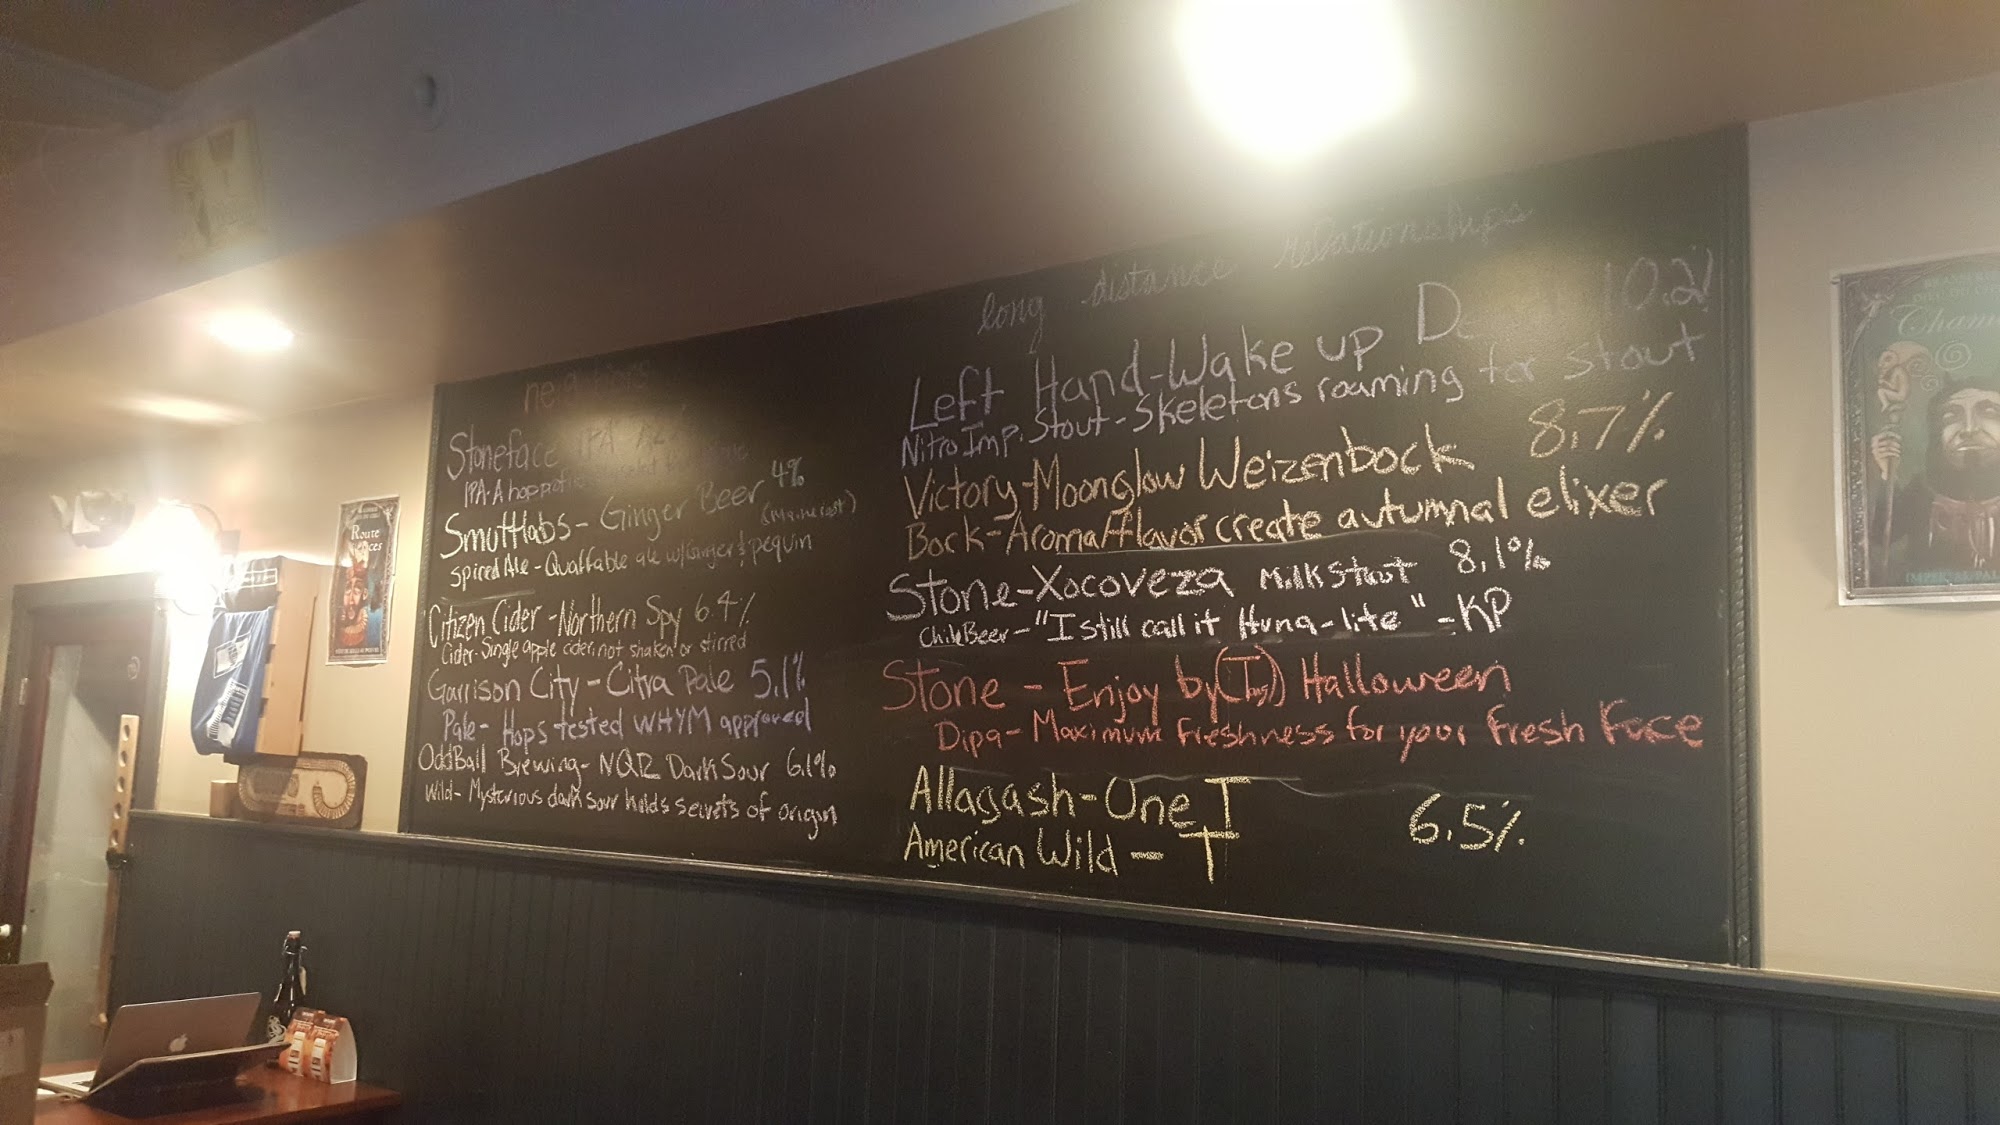 neighbors
Stoneface IPA
IPA-A hop
Smuttlabs - Ginger Beer 4%
Spiced Ale - Quaffable ale w/Ginger & pequin
Citizen Cider - Northern Spy 6.4%
Cider - Single apple cider, not shaken or stirred
Garrison City - Citra Pale 5.1%
Pale - Hops tested WHYM approved
OddBall Brewing - NQR Dark Sour 6.1%
Wild - Mysterious dark sour holds secrets of origin
long distance relationships
Left Hand - Wake up 10.2
Nitro Imp. Stout - Skeletons roaming for stout
Victory - Moonglow Weizenbock 8.7%
Bock - Aroma/flavor create autumnal elixer
Stone - Xocoveza Milk Stout 8.1%
Chile Beer - "I still call it Huna-lite" - KP
Stone - Enjoy by Halloween
Dipa - Maximum freshness for your Fresh Face
Allagash - One T
American Wild - T 6.5%
Route